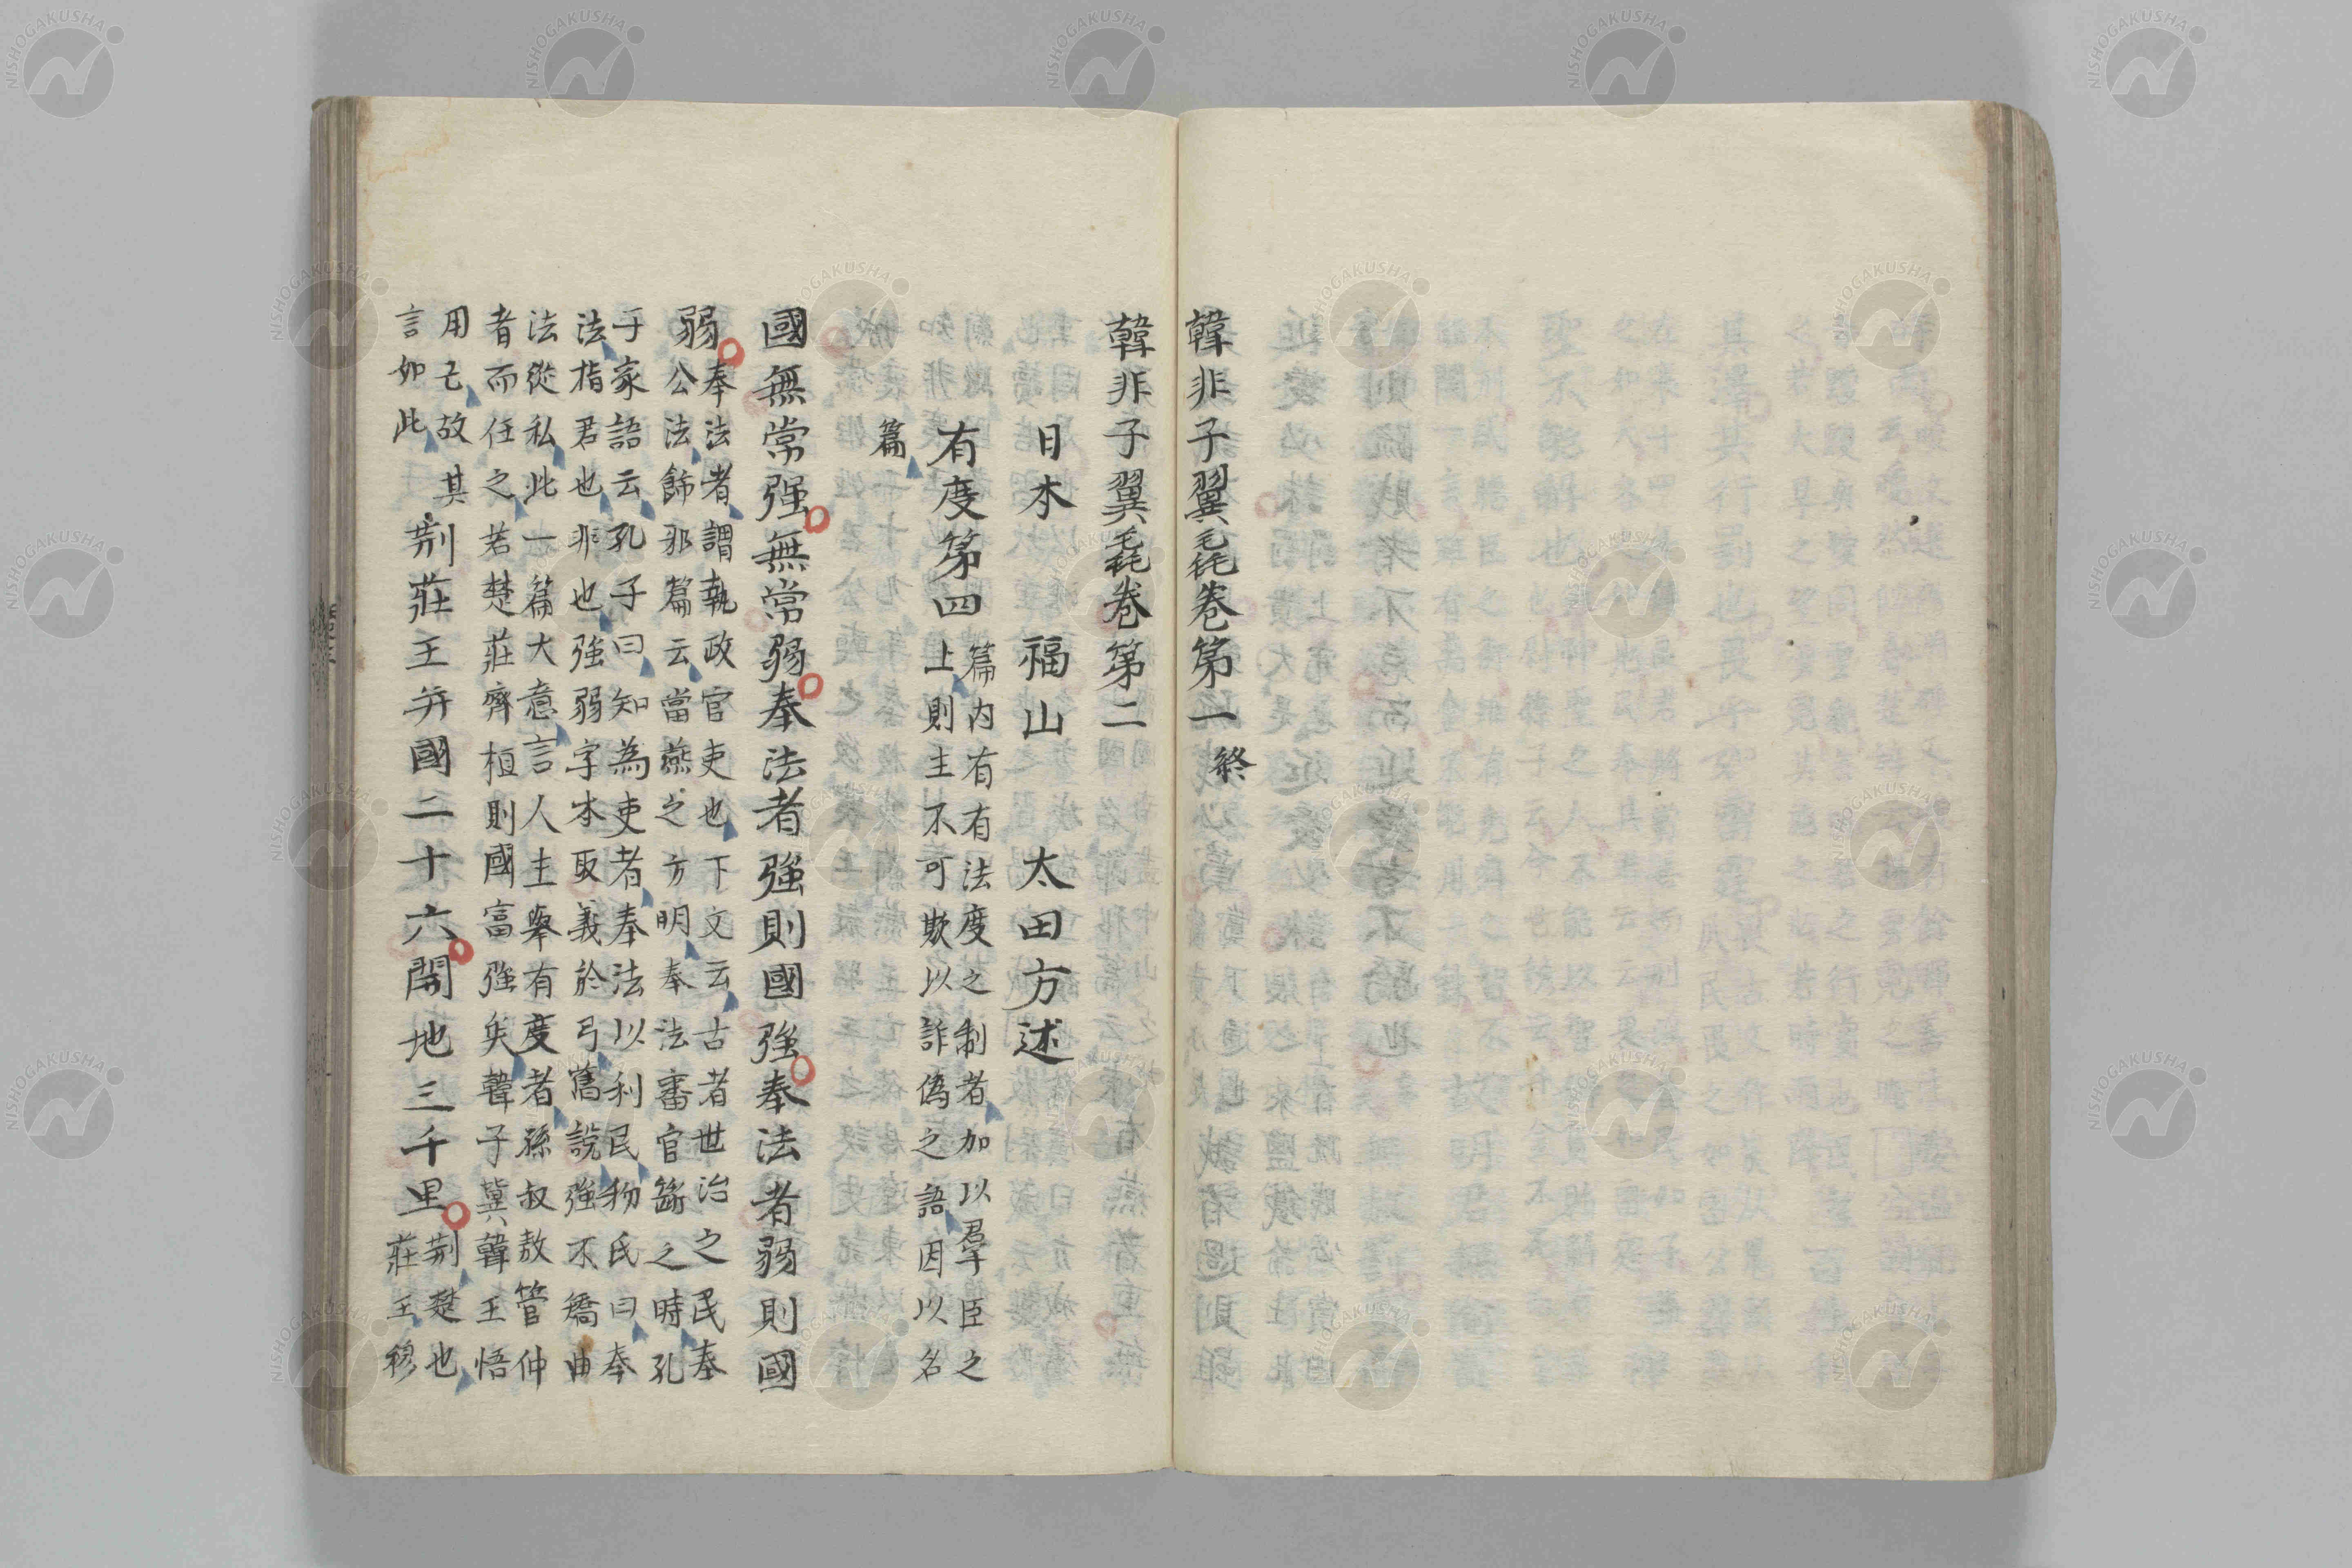 韓非子翼毳卷第一 終
韓非子翼毳卷第二
日本 福山 太田方述
有度第四
篇内有有法度之制者加以羣臣之
上則主不可欺以詐偽之語因以名
篇
國無常强無常弱奉法者強則國強奉法者弱則國
弱
奉法者謂執政官吏也下文云古者世治之民奉
公法飾邪篇云當燕之方明奉法審官斷之時孔
子家語云孔子曰知為吏者奉法以利民物氏曰奉
法指君也非也強弱字本取義於弓舊說強不矯曲
法從私此一篇大意言人主舉有度者孫叔敖管仲
者而任之若楚莊齊桓則國富強矣韓子冀韓王悟
用己故其
言如此
荆莊王并國二十六開地三千里
荆楚也
莊王穆
NISHOGAKUSHA